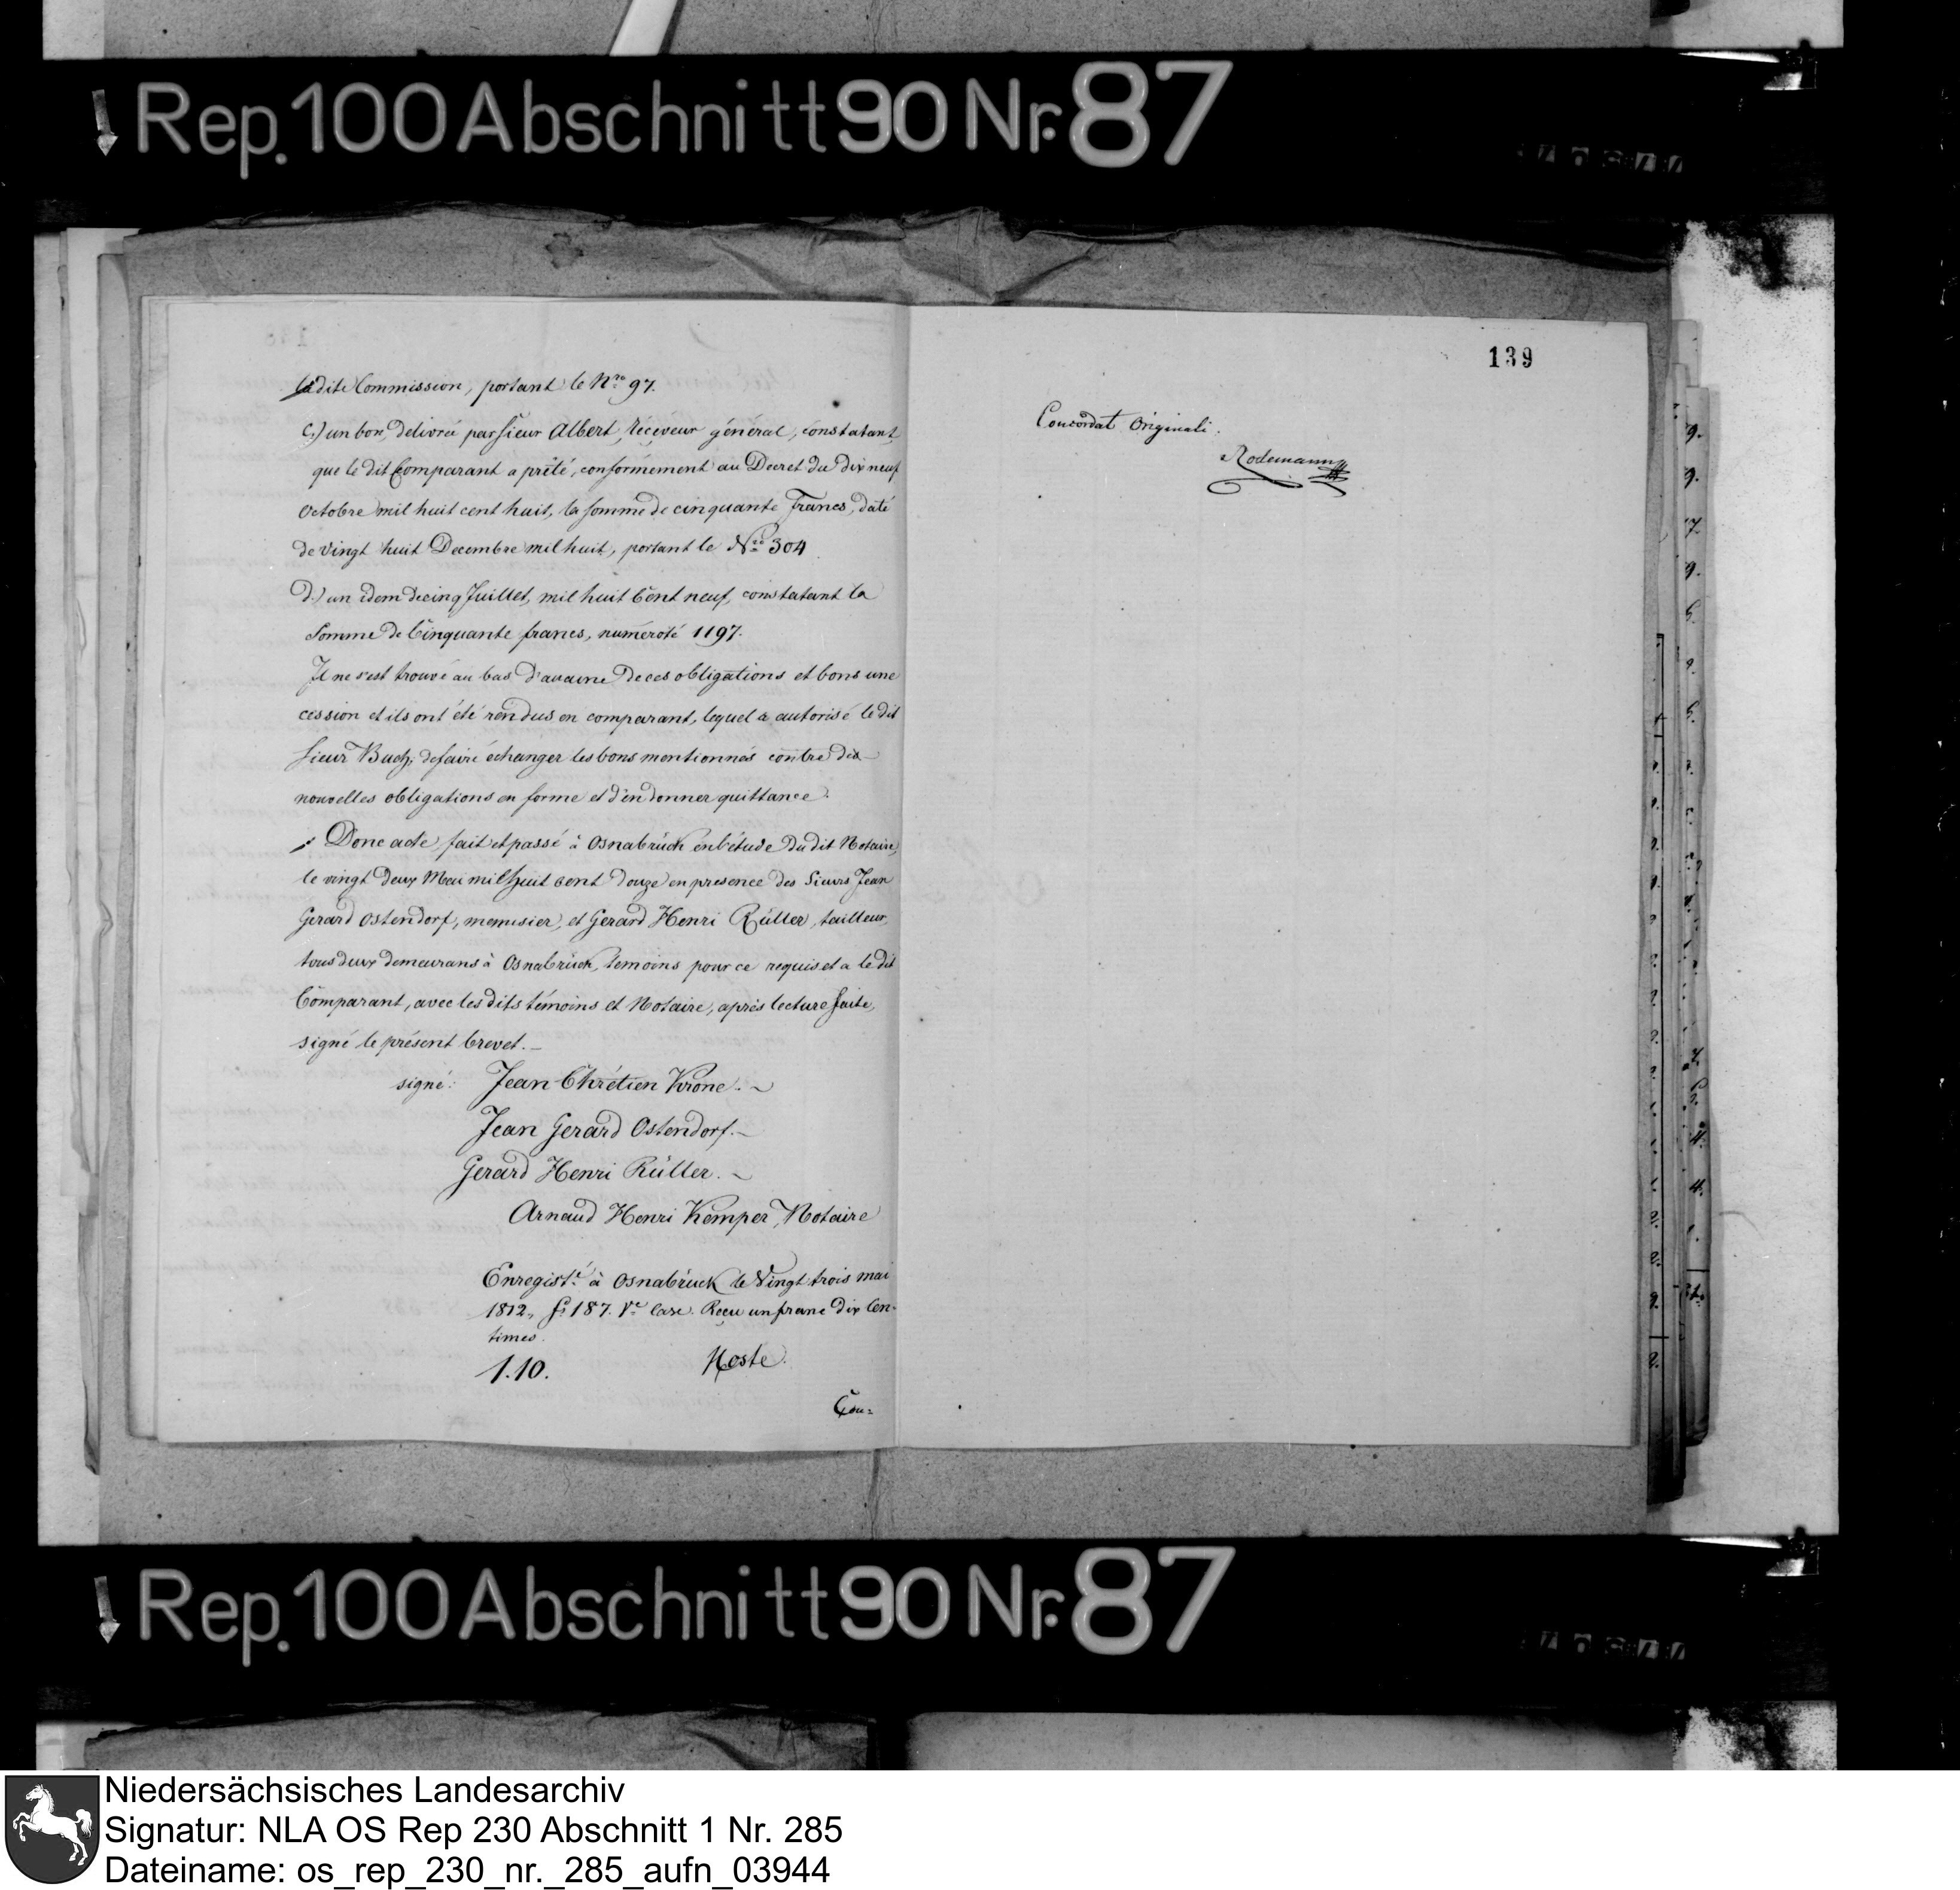 Rep. 100 Abschnitt 90 Nr. 87
ladite Commission, portant le Nro 97.
c.) un bon, delivrée par Sieur Albert, réceveur général, constatant
que le dit Comparant a prêté, conformement au Decret du dix neuf
Octobre mil huit cent huit, la somme de cinquante Francs, daté
de vingt huit Decembre mil huit, portant le Nro 304
d.) un idem de cinq Juillet, mil huit Cent neuf, constatant la
Somme de Cinquante francs, numéroté 1197.
Il ne s'est trouvé au bas d'aucune de ces obligations et bons une
cession et ils ont été rendus en comparant, lequel a autorisé le dit
Sieur Buch, de faire échanger les bons mentionnés contre des
nouvelles obligations en forme et d'en donner quittance.
Donc acte, fait et passé à Osnabrück en l'étude du dit Notaire,
le vingt deux Mai mil huit cent douze en presence des Sieurs Jean
Gerard Ostendorf, menusier, et Gerard Henri Rüller, tailleur,
tous deux demeurans à Osnabrück, temoins pour ce requis et a le dit
Comparant, avec les dits témoins et Notaire, après lecture faite,
signé le présent brevet.
signé: Jean Chrétien Krone.
Jean Gerard Ostendorf.
Gerard Henri Rüller.
Arnaud Henri Kemper, Notaire
Enregistré à Osnabrück le Vingt trois mai
1812, fo 187. Vo Case. Reçu un franc dix Cen-
times.
1.10. Noste.
Con=
139
Concordat Originali.
Rodemann
Rep. 100 Abschnitt 90 Nr. 87
Niedersächsisches Landesarchiv
Signatur: NLA OS Rep 230 Abschnitt 1 Nr. 285
Dateiname: os_rep_230_nr._285_aufn_03944